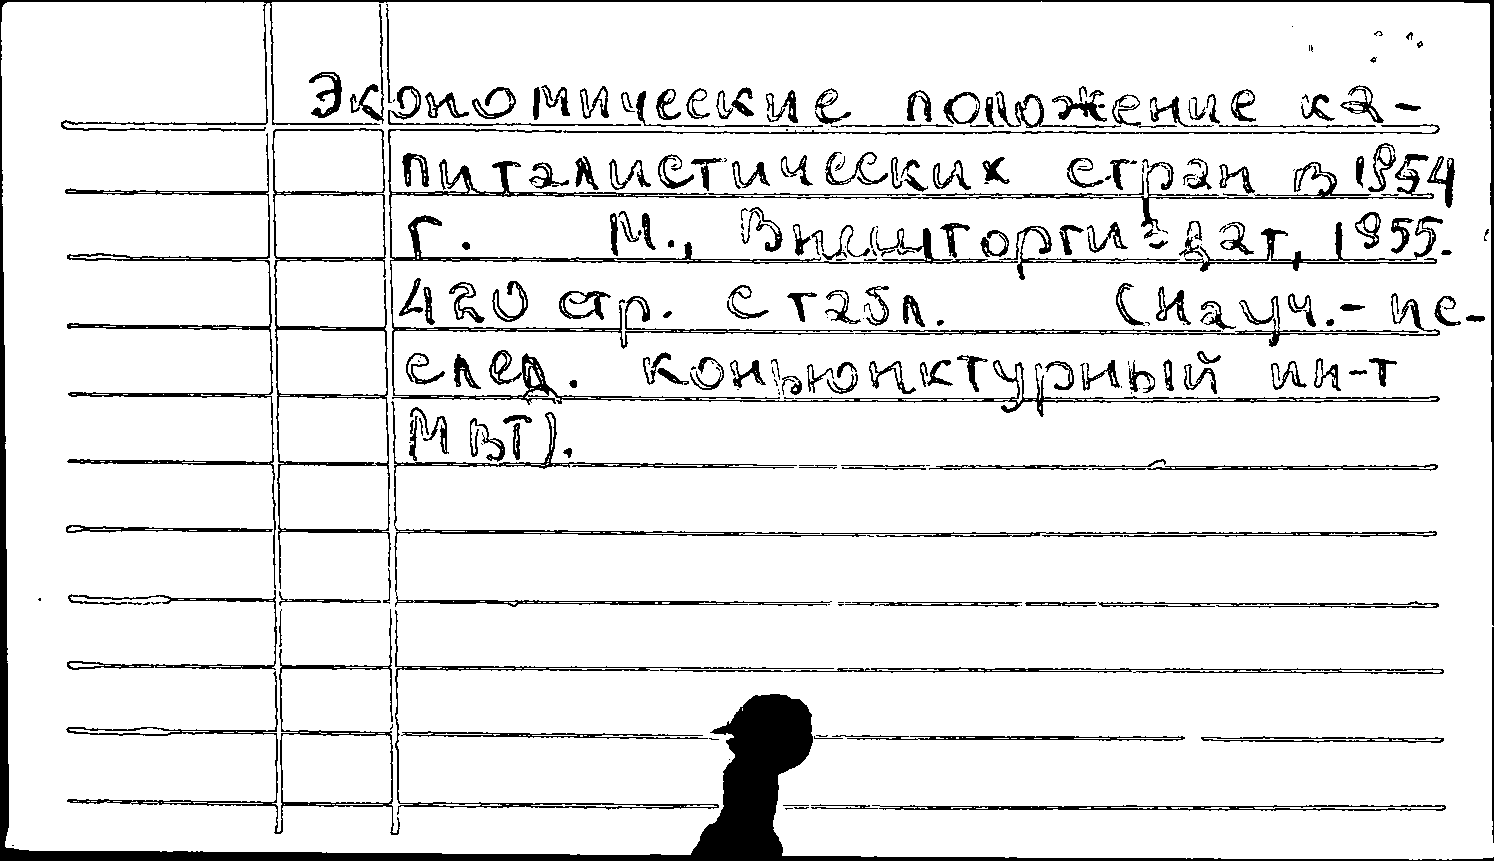 Экономические положение ка-
питалистических стран в 1954
г. М., Внешторгиздат, 1955.
420 стр. с табл. (Науч.-ис-
след. коньюнктурный ин-т
МВТ).